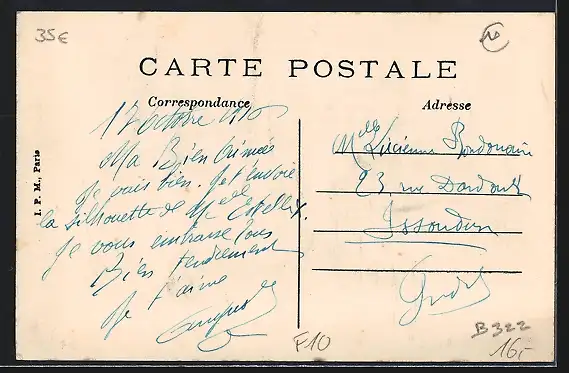 35€
10
CARTE POSTALE
Correspondance
Adresse
I. P. M., Paris
12 octobre 1910
Ma Bien Aimée
Je vais bien. Je t'envoie
la silhouette de Melle
Je vous embrasse tous
Bien tendrement
Je t'aime
Melle Lucienne
23 rue
Issoudun
Indre
F10
B322
16,-